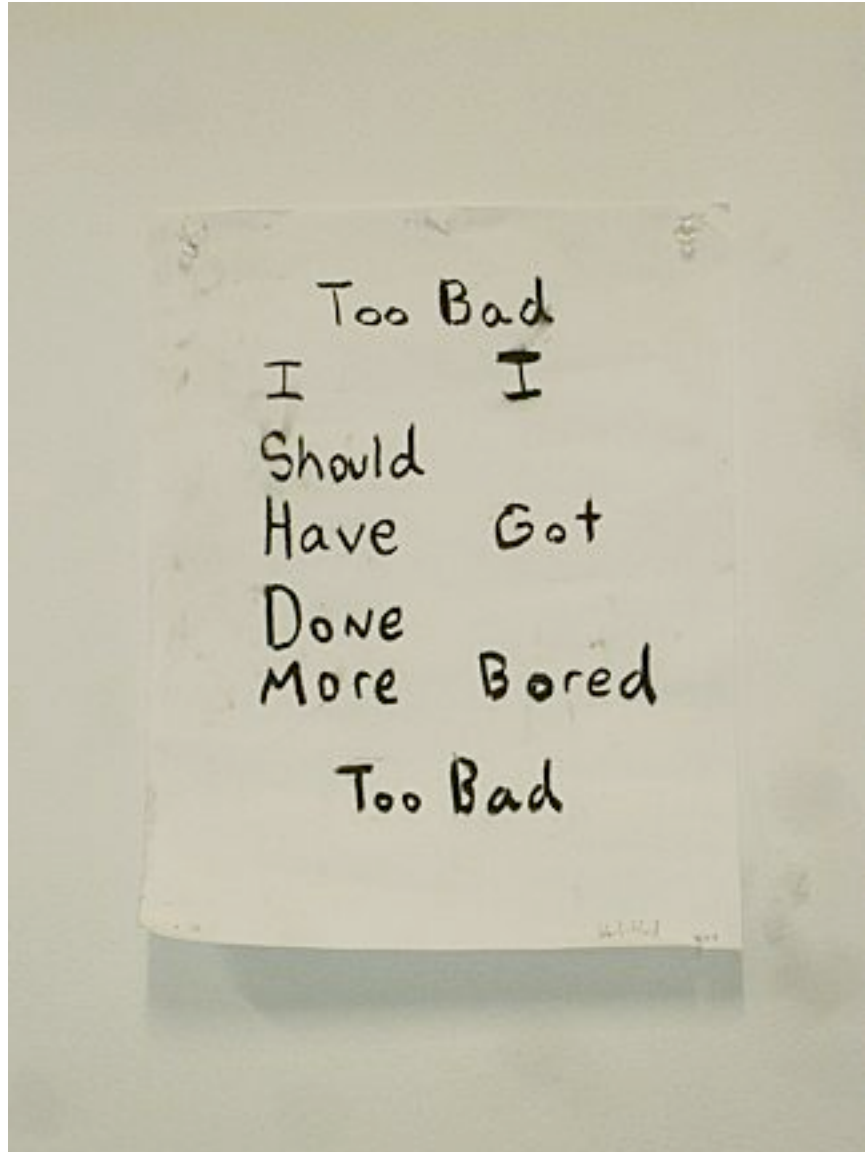 Too Bad
I I
Should
Have Got
Done
More Bored
Too Bad